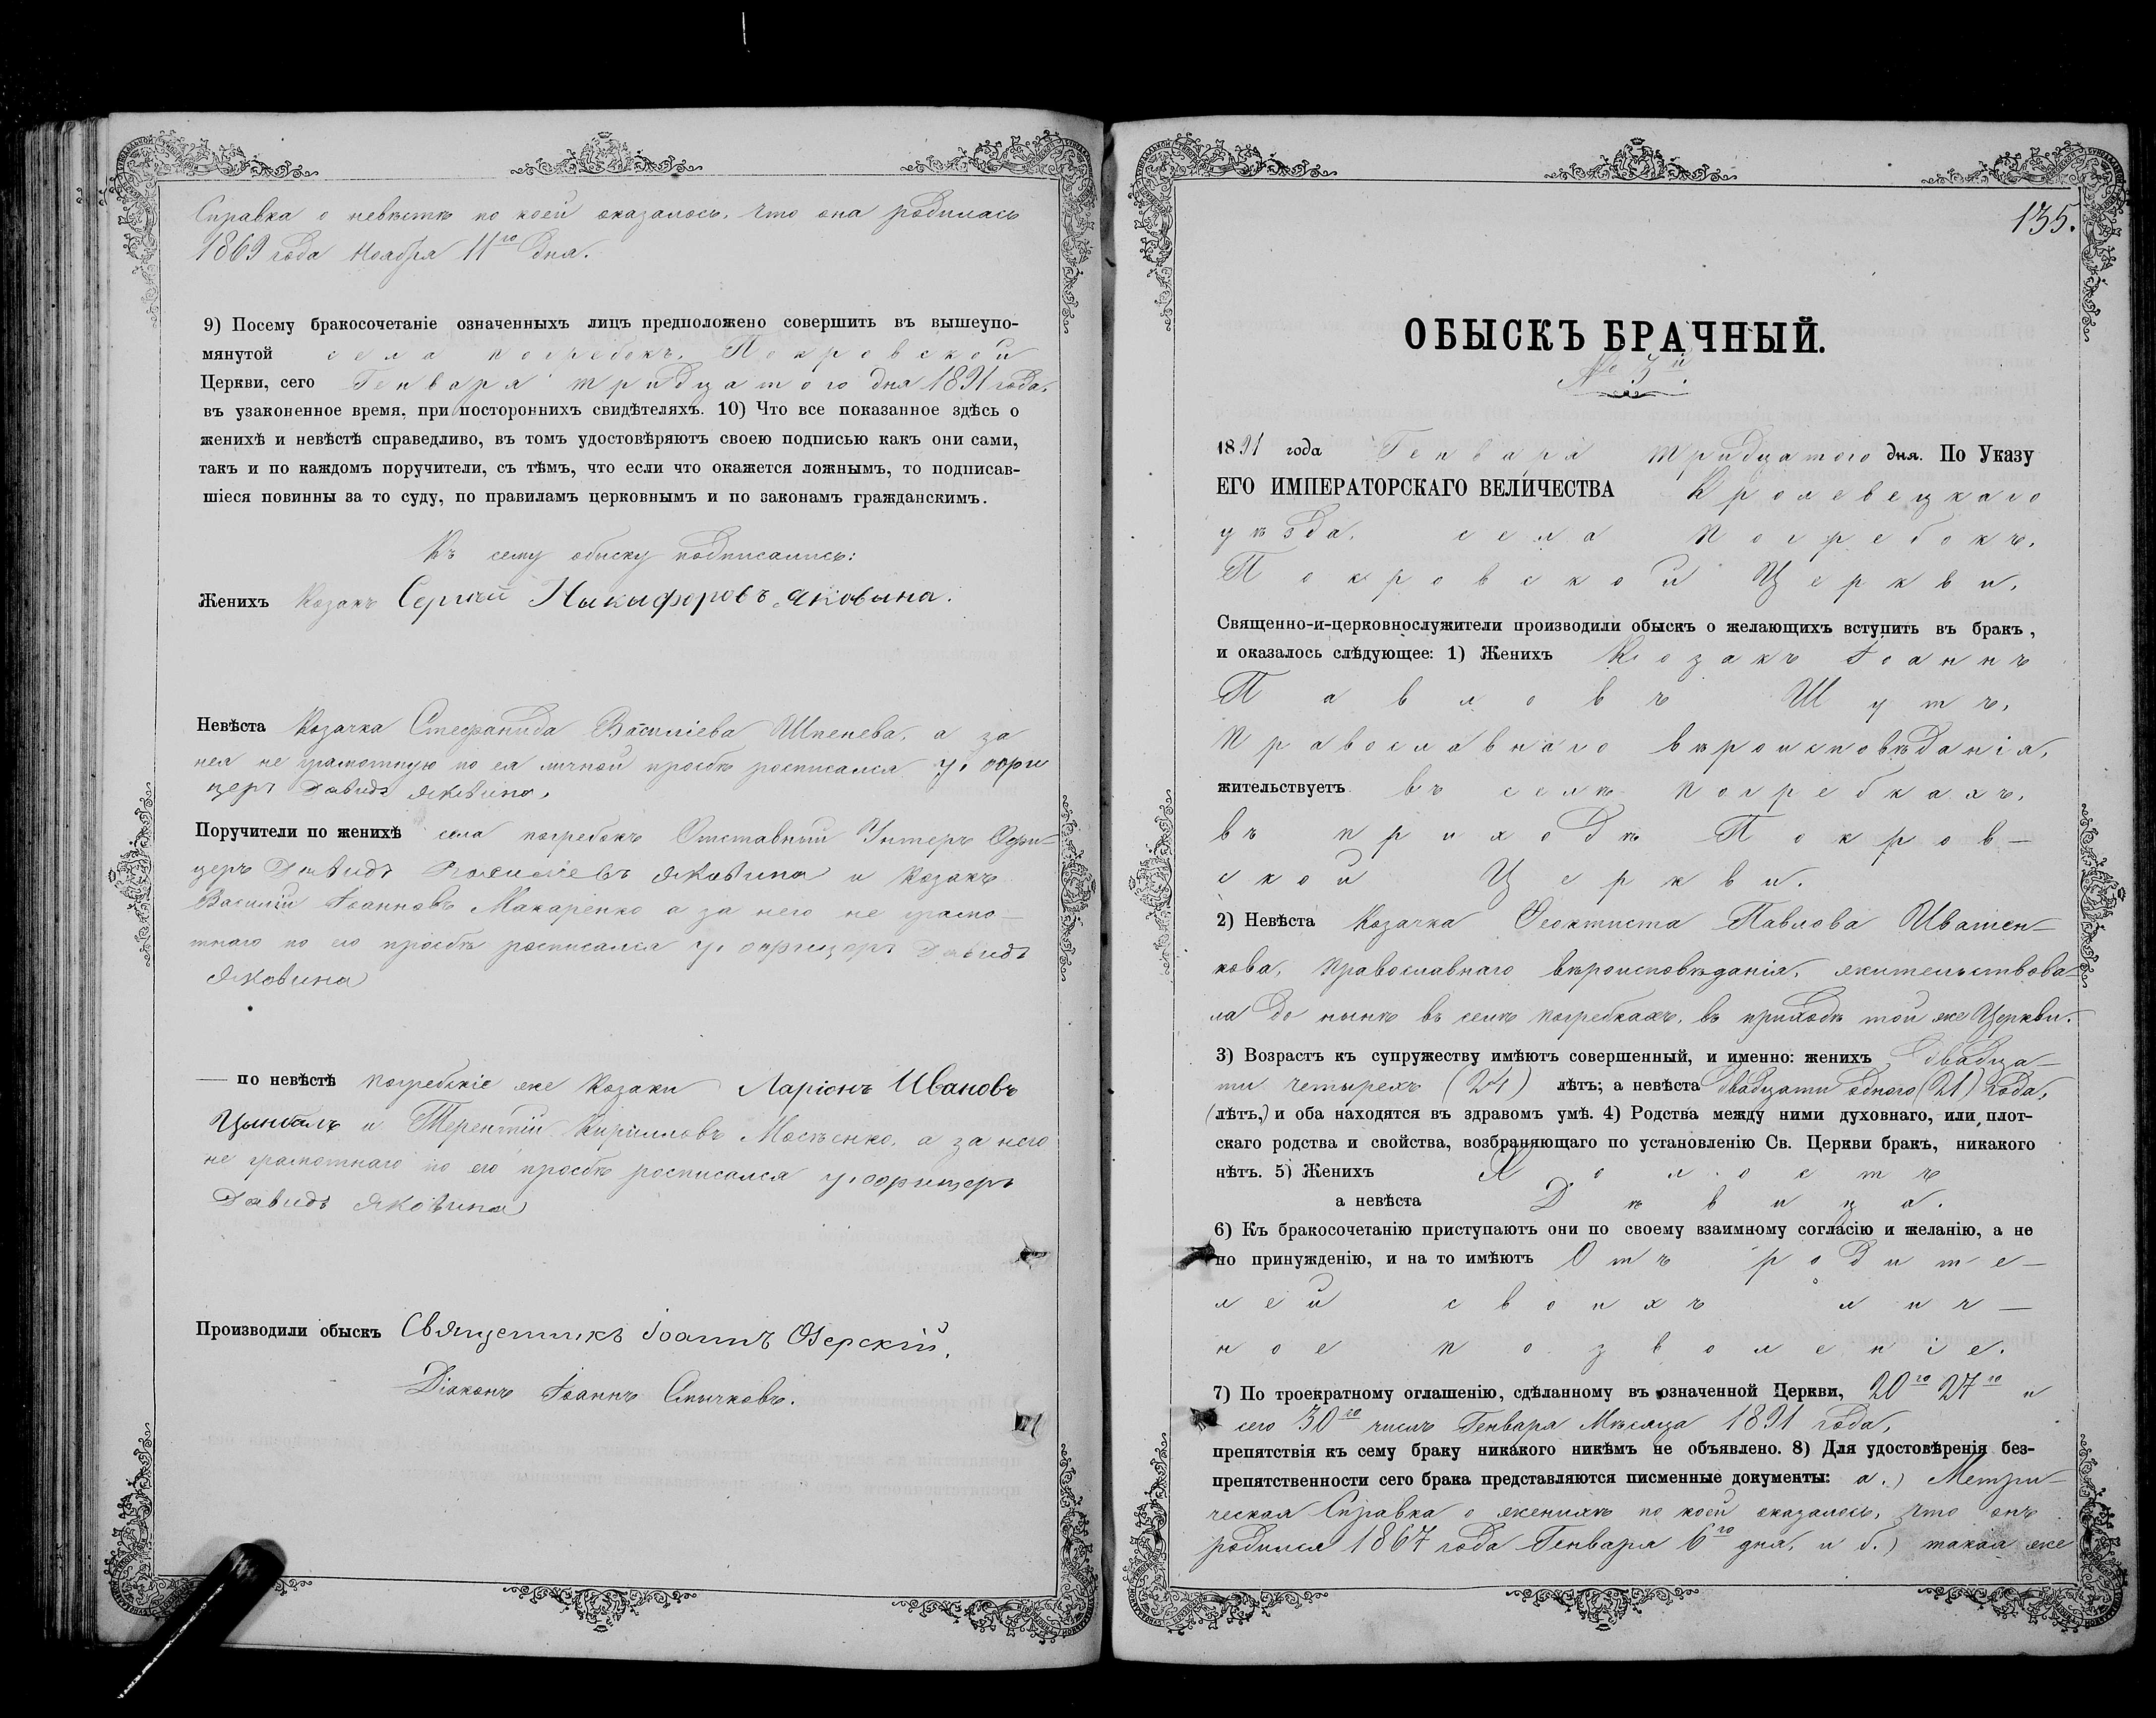 Справка о невѣстѣ по коей оказалось, что она родилась
1869 года Ноября 11го дня.
9) Посему бракосочетаніе означенныхъ лицъ предположено совершить въ вышеупо-
мянутой села Погребокъ, Покровской
Церкви, сего Генваря тридцатого дня 1891 года,
въ узаконенное время, при постороннихъ свидѣтеляхъ. 10) Что все показанное здѣсь о
женихѣ и невѣстѣ справедливо, въ томъ удостовѣряютъ своею подписью какъ они сами,
такъ и по каждомъ поручители, съ тѣмъ, что если что окажется ложнымъ, то подписав-
шіеся повинны за то суду, по правиламъ церковнымъ и по законамъ гражданскимъ.
Къ сему обыску подписались:
Женихъ Козакъ Сергѣй Никифоровъ Яковина.
Невѣста Козачка Стефанида Василіева Шпенева, а за
нея не грамотную по ея личной просьбѣ росписался у. офи
церъ Давидъ Яковина,
Поручители по женихѣ села погребокъ Отставный Унтеръ Офи-
церъ Давидъ Василіевъ Яковина и Козакъ
Василій Іоанновъ Макаренко а за него не грамо-
тнаго по его просьбѣ росписался у. офицеръ Давидъ
Яковина
— по невѣстѣ погребскіе же Козаки Ларіонъ Ивановъ
Цымбалъ и Терентій Кирилловъ Мосѣенко, а за него
не грамотнаго по его просьбѣ росписался у. офицеръ
Давидъ Яковина
Производили обыскъ Священникъ Іоаннъ Озерскій.
Діаконъ Іоаннъ Смычковъ.
135.
ОБЫСКЪ БРАЧНЫЙ.
№ 3й.
1891 года Генваря тридцатого дня. По Указу
ЕГО ИМПЕРАТОРСКАГО ВЕЛИЧЕСТВА Кролевецкаго
уѣзда, села Погребокъ,
Покровской Церкви,
Священно-и-церковнослужители производили обыскъ о желающихъ вступить въ бракъ,
и оказалось слѣдующее: 1) Женихъ Козакъ Іоаннъ
Павловъ Шутъ,
Православнаго вѣроисповѣданія,
жительствуетъ въ селѣ Погребкахъ,
въ приходѣ Покров-
ской Церкви.
2) Невѣста Козачка Феоктиста Павлова Ивашен-
кова, Православнаго вѣроисповѣданія, жительствова-
ла до нынѣ въ селѣ Погребкахъ, въ приходѣ той же Церкви.
3) Возрастъ къ супружеству имѣютъ совершенный, и именно: женихъ двадца-
ти четырехъ (24) лѣтъ; а невѣста двадцати одного (21) года,
(лѣтъ,) и оба находятся въ здравомъ умѣ. 4) Родства между ними духовнаго, или плот-
скаго родства и свойства, возбраняющаго по установленію Св. Церкви бракъ, никакого
нѣтъ. 5) Женихъ Холостъ
а невѣста Дѣвица.
6) Къ бракосочетанію приступаютъ они по своему взаимному согласію и желанію, а не
по принужденію, и на то имѣютъ Отъ родите-
лей своихъ лич-
ное позволеніе.
7) По троекратному оглашенію, сдѣланному въ означенной Церкви, 20го 27го и
сего 30го числъ Генваря Мѣсяца 1891 года,
препятствія къ сему браку никакого никѣмъ не объявлено. 8) Для удостовѣренія без-
препятственности сего брака представляются писменные документы: а.) Метри-
ческая Справка о женихѣ по коей оказалось, что онъ
родился 1867 года Генваря 6го дня, и б.) такая же